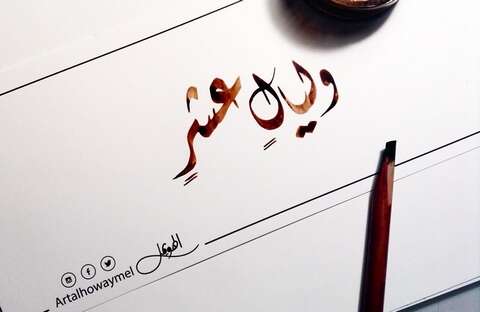 وليالٍ عشرٍ
الهويمل
Artalhowaymel